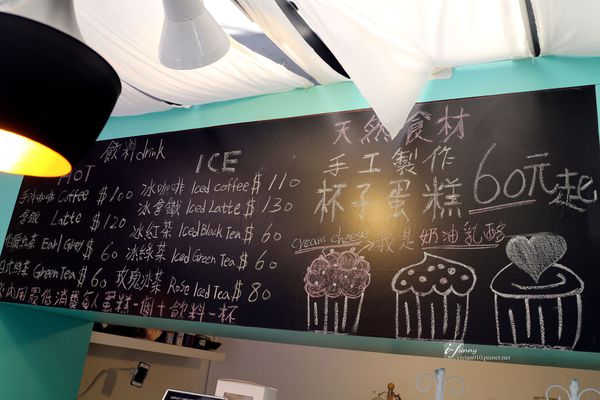 飲料drink
HOT
手沖咖啡 Coffee $100
拿鐵 Latte $120
伯爵紅茶 Earl Grey $60
日式綠茶 Green Tea $60
ICE
冰咖啡 Iced coffee $110
冰拿鐵 Iced Latte $130
冰紅茶 Iced Black Tea $60
冰綠茶 Iced Green Tea $60
玫瑰冰茶 Rose Iced Tea $80
內用最低消費每人蛋糕一個+飲料一杯
天然食材
手工製作
杯子蛋糕 60元起
cream cheese → 我是奶油乳酪
i-funny
vivian010.pixnet.net